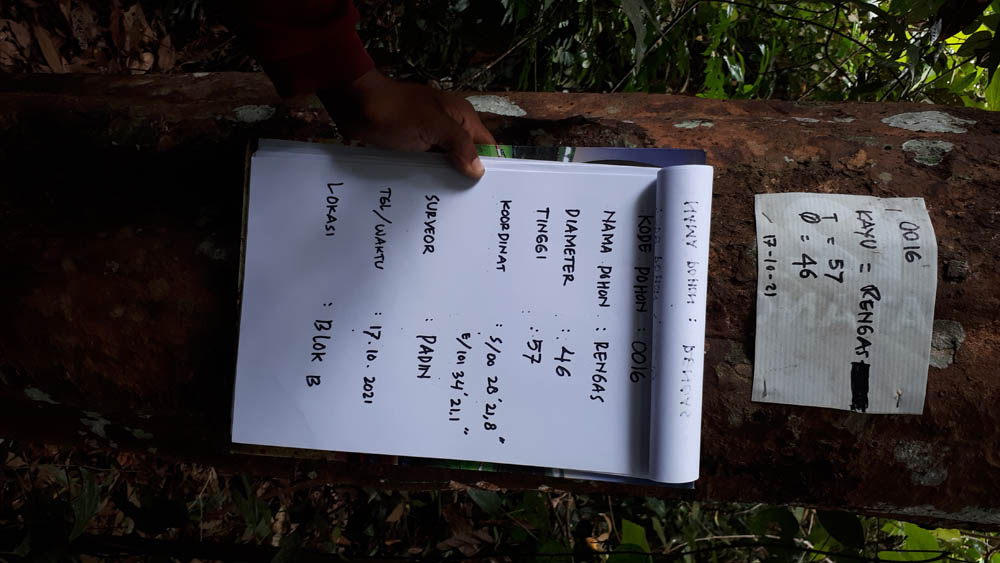 0016
KAYU = RENGAS
T = 57
Ø = 46
17-10-21
KODE POHON : 0016
NAMA POHON : RENGAS
DIAMETER : 46
TINGGI : 57
KOORDINAT : S/00 28'21,8"
E/101 34'21.1"
SURVEOR : PADIN
TGL/WAKTU : 17.10.2021
LOKASI : BLOK B